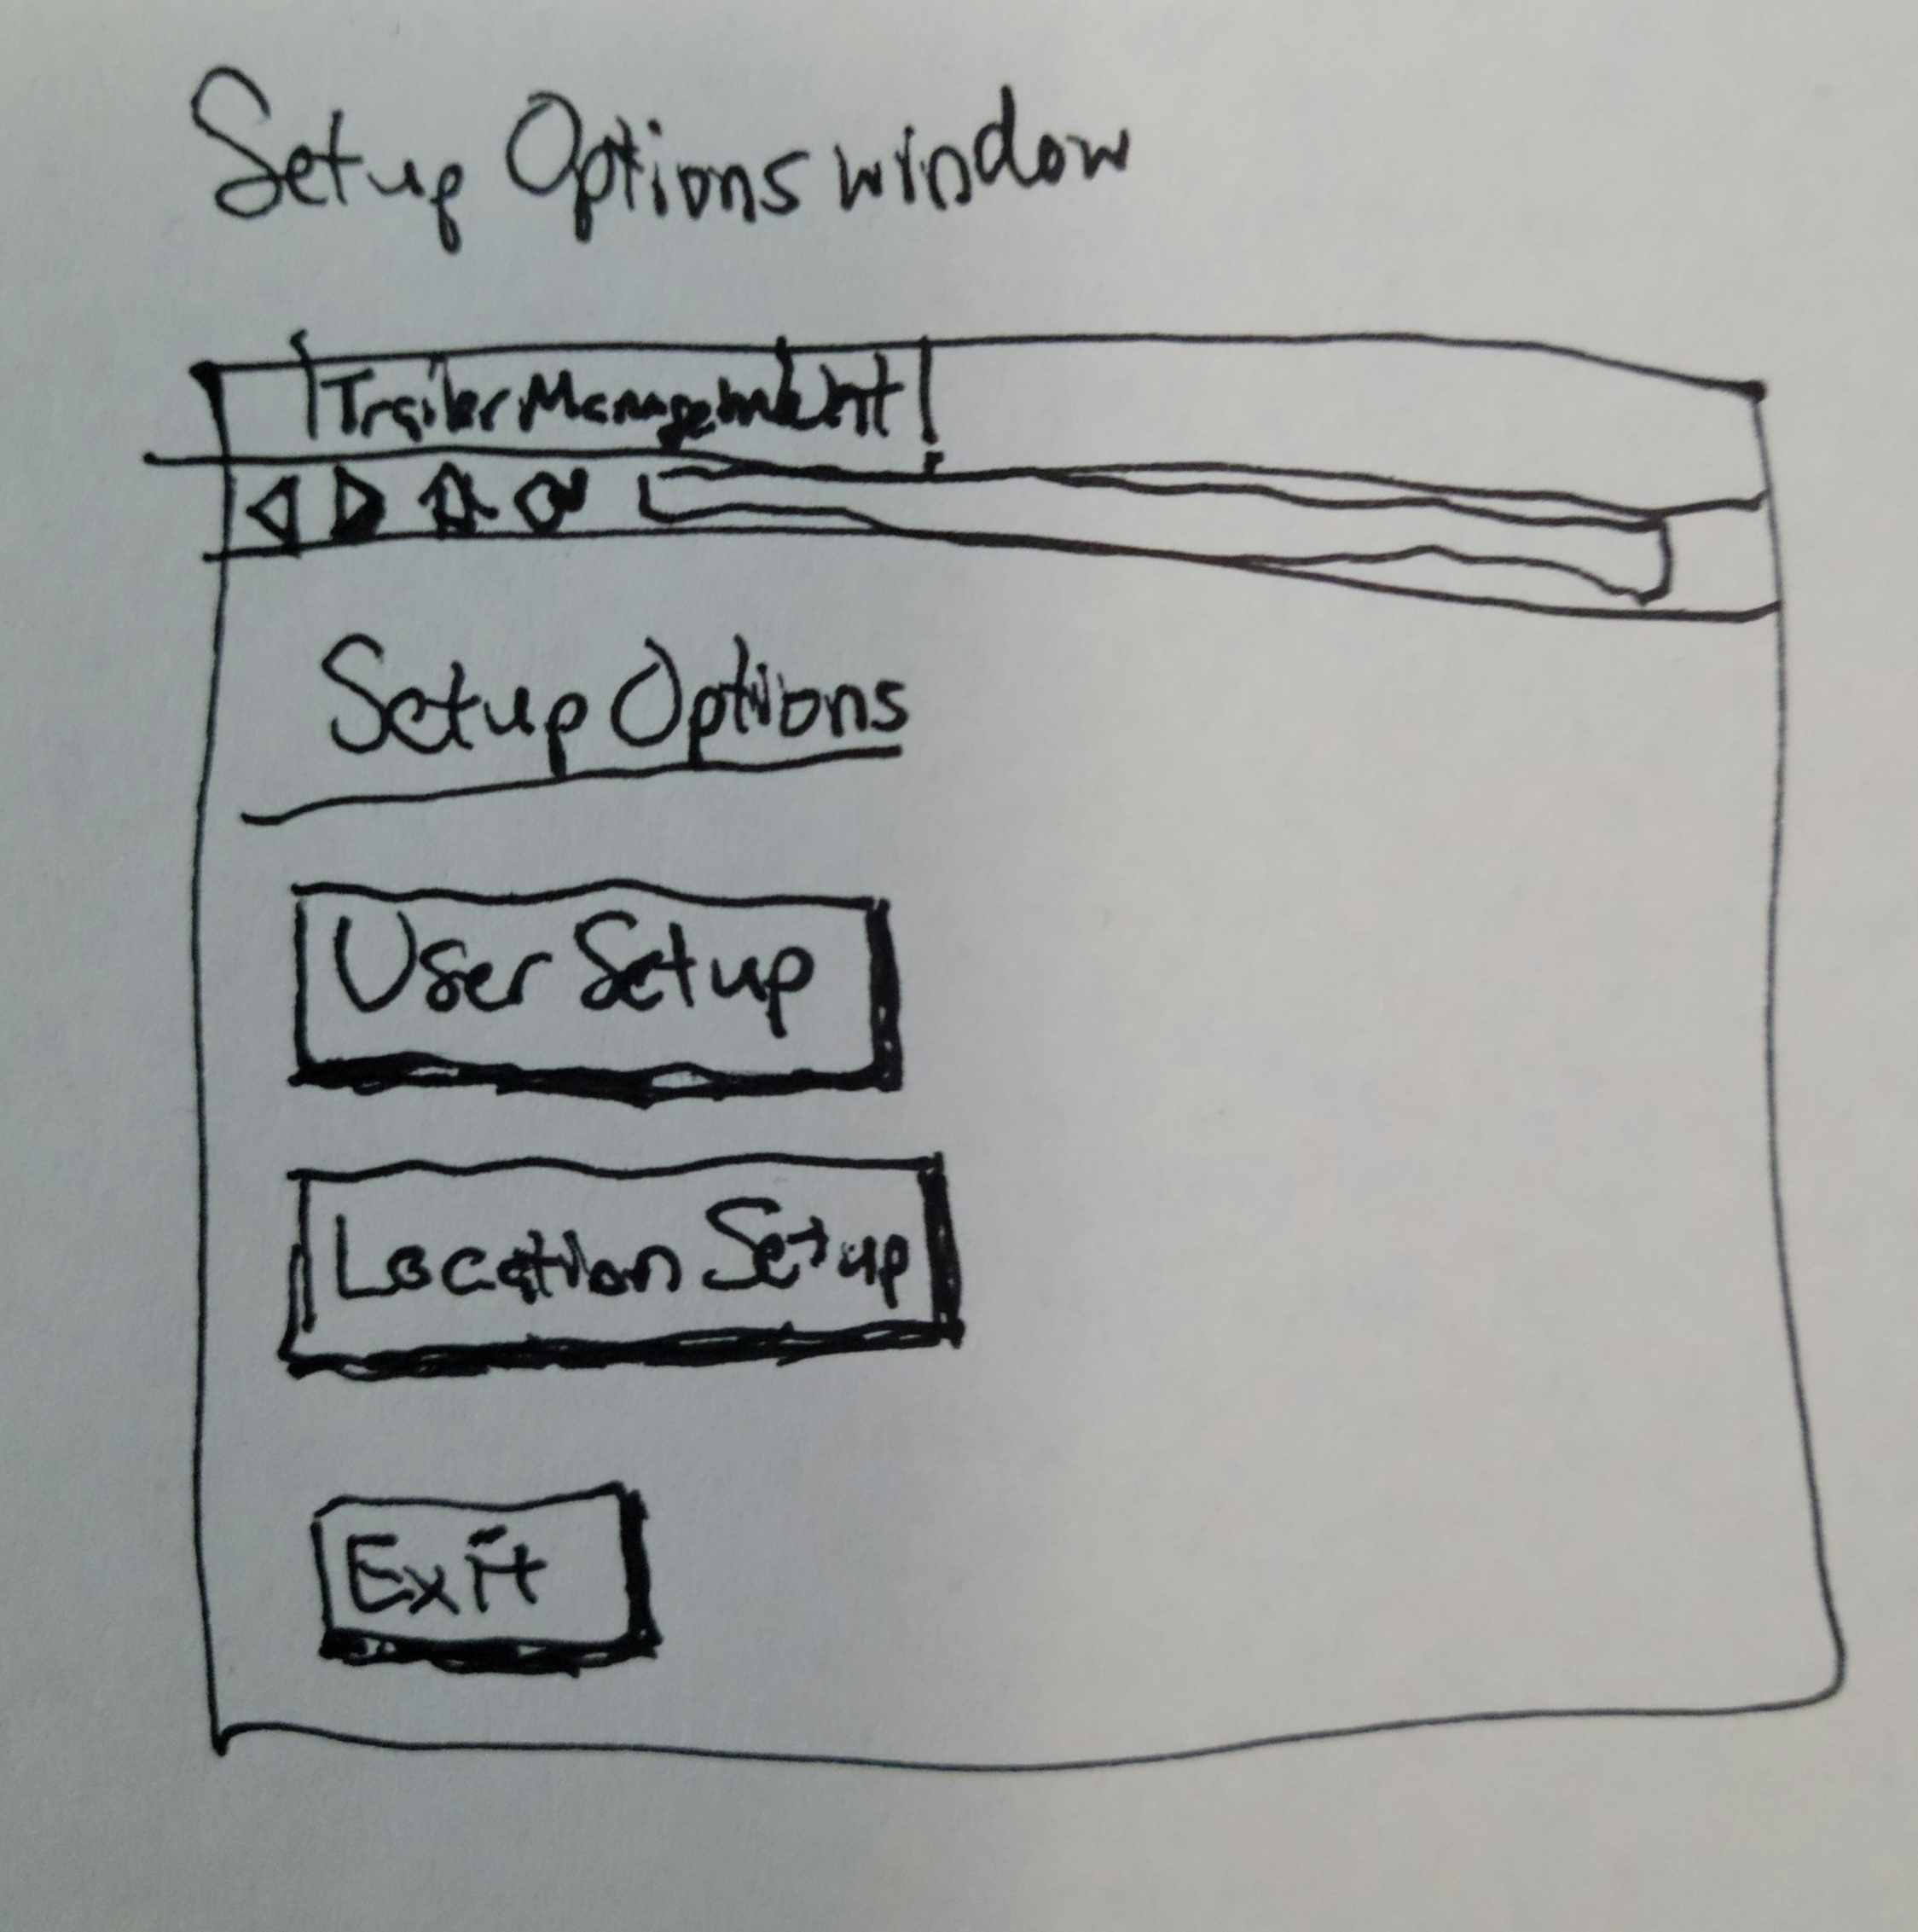 Setup Options window
Trailer Management
Setup Options
User Setup
Location Setup
Exit